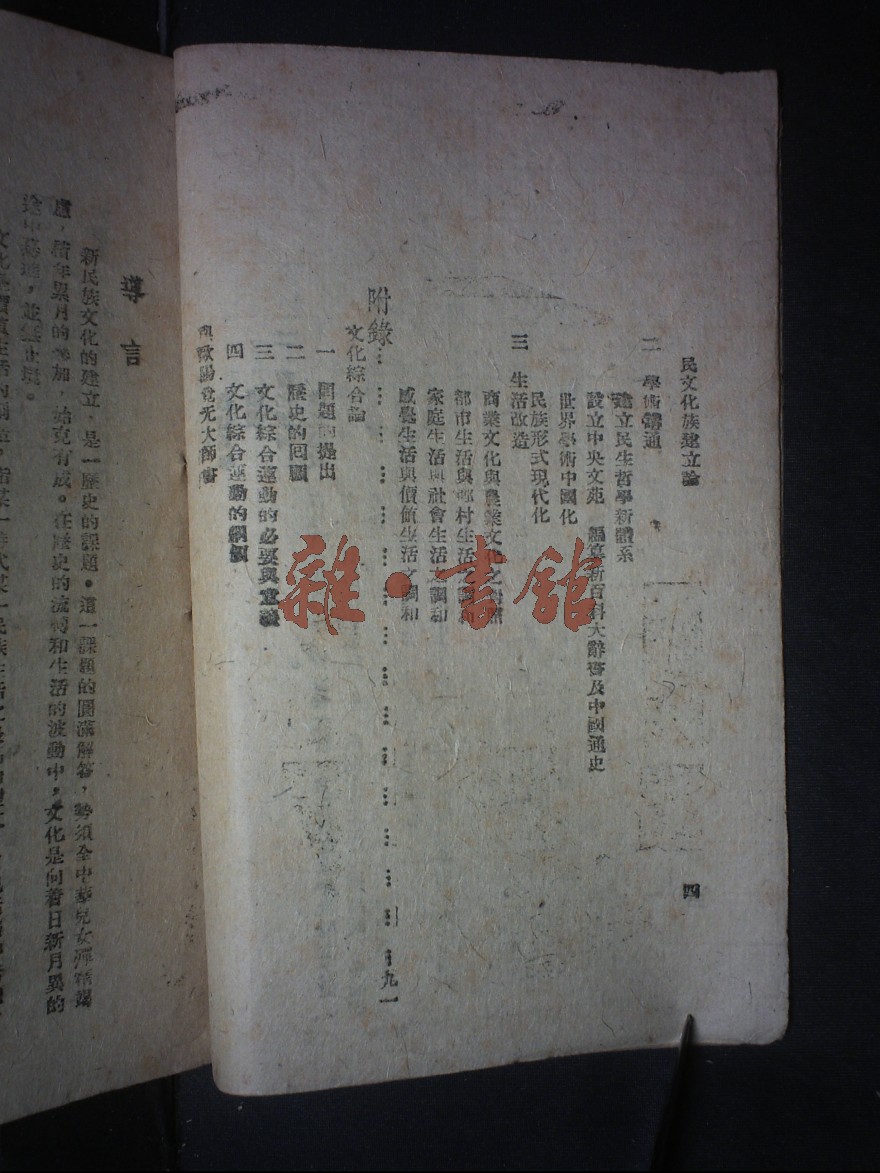 民文化族建立論
四
二 學術溝通
建立民生哲學新體系
設立中央文苑 編纂新百科大辭書及中國通史
世界學術中國化
民族形式現代化
三 生活改造
商業文化與農業文化之對照
都市生活與鄉村生活之調和
家庭生活與社會生活之調和
感覺生活與價值生活之調和
附錄………………………………………一九一
文化綜合論
一 問題的提出
二 歷史的回顧
三 文化綜合運動的必要與意義
四 文化綜合運動的綱領
與歐陽竟无大師書
導言
新民族文化的建立,是一歷史的課題。這一課題的圓滿解答,勢須全中華兒女殫精竭
慮,積年累月的參加,始克有成。在歷史的流轉和生活的波動中,文化是向着日新月異的
途中邁進,並無止境。
雜·書館